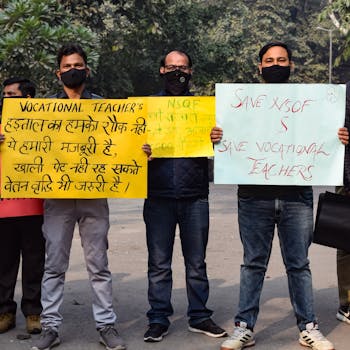 VOCATIONAL TEACHER'S
हड़ताल का हमको शौक नहीं
ये हमारी मजबूरी है,
खाली पेट नही रह सकते
वेतन वृद्धि भी जरुरी है ।
NSQF
SAVE NSQF
&
SAVE VOCATIONAL
TEACHERS